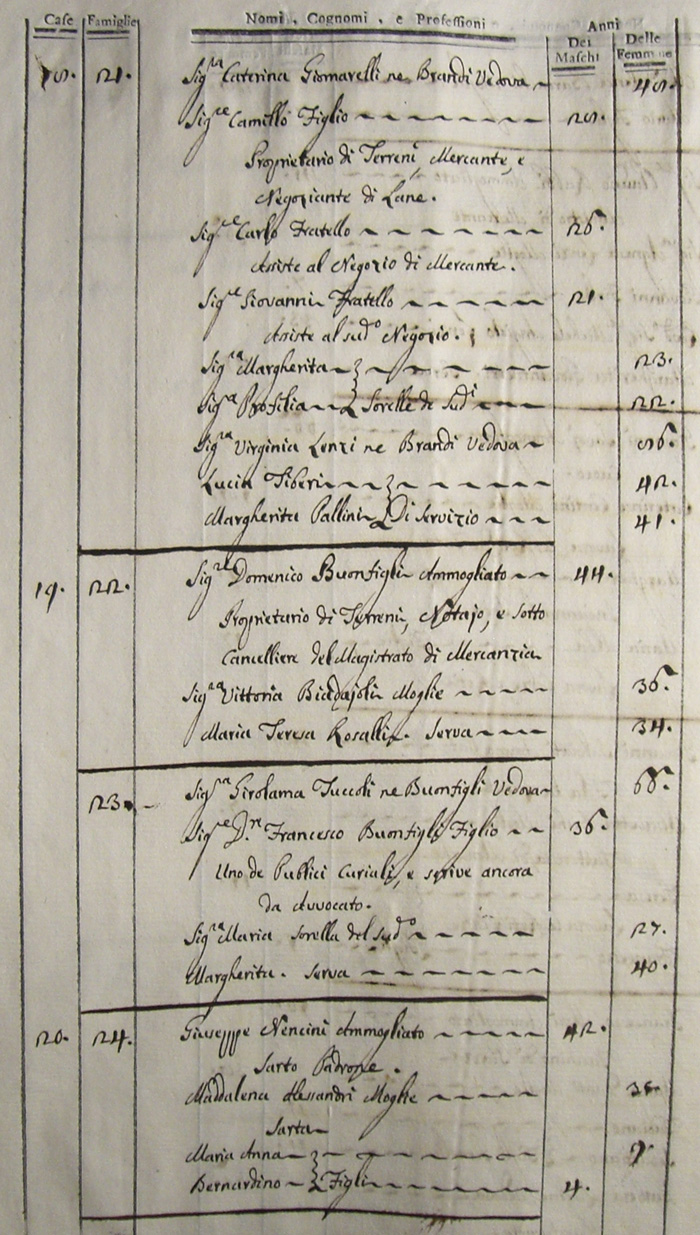 Case Famiglie Nomi, Cognomi, e Professioni Anni
Dei Maschi Delle Femmine
18. 21. Sig.ra Caterina Giomarelli ne Brandi Vedova 48.
Sig.re Camillo Figlio 28.
Proprietario di Terreni, Mercante, e
Negoziante di Lane.
Sig.re Carlo Fratello 26.
Assiste al Negozio di Mercante.
Sig.re Giovanni Fratello 21.
Assiste al sud.o Negozio.
Sig.ra Margherita 23.
Sig.ra Sorelle de Sud.i 22.
Sig.ra Virginia Lenzi ne Brandi Vedova 56.
Lucia Tiberi 42.
Margherita Pallini Di Servizio 41.
19. 22. Sig.re Domenico Buonfigli Ammogliato 44.
Proprietario di Terreni, Notajo, e Sotto
Cancelliere del Magistrato di Mercanzia
Sig.ra Vittoria Biadajoli Moglie 36.
Maria Teresa Rosalli. Serva 34.
23. Sig.ra Girolama Tuccoli ne Buonfigli Vedova 68.
Sig.re D.r Francesco Buonfigli Figlio 36.
Uno de Publici Curiali, e scrive ancora
da Avvocato.
Sig.ra Maria Sorella del Sud.o 27.
Margherita. Serva 40.
20. 24. Giuseppe Nencini Ammogliato 42.
Sarto Padrone.
Maddalena Alessandri Moglie
Sarta
Maria Anna 9.
Bernardino Figli 4.